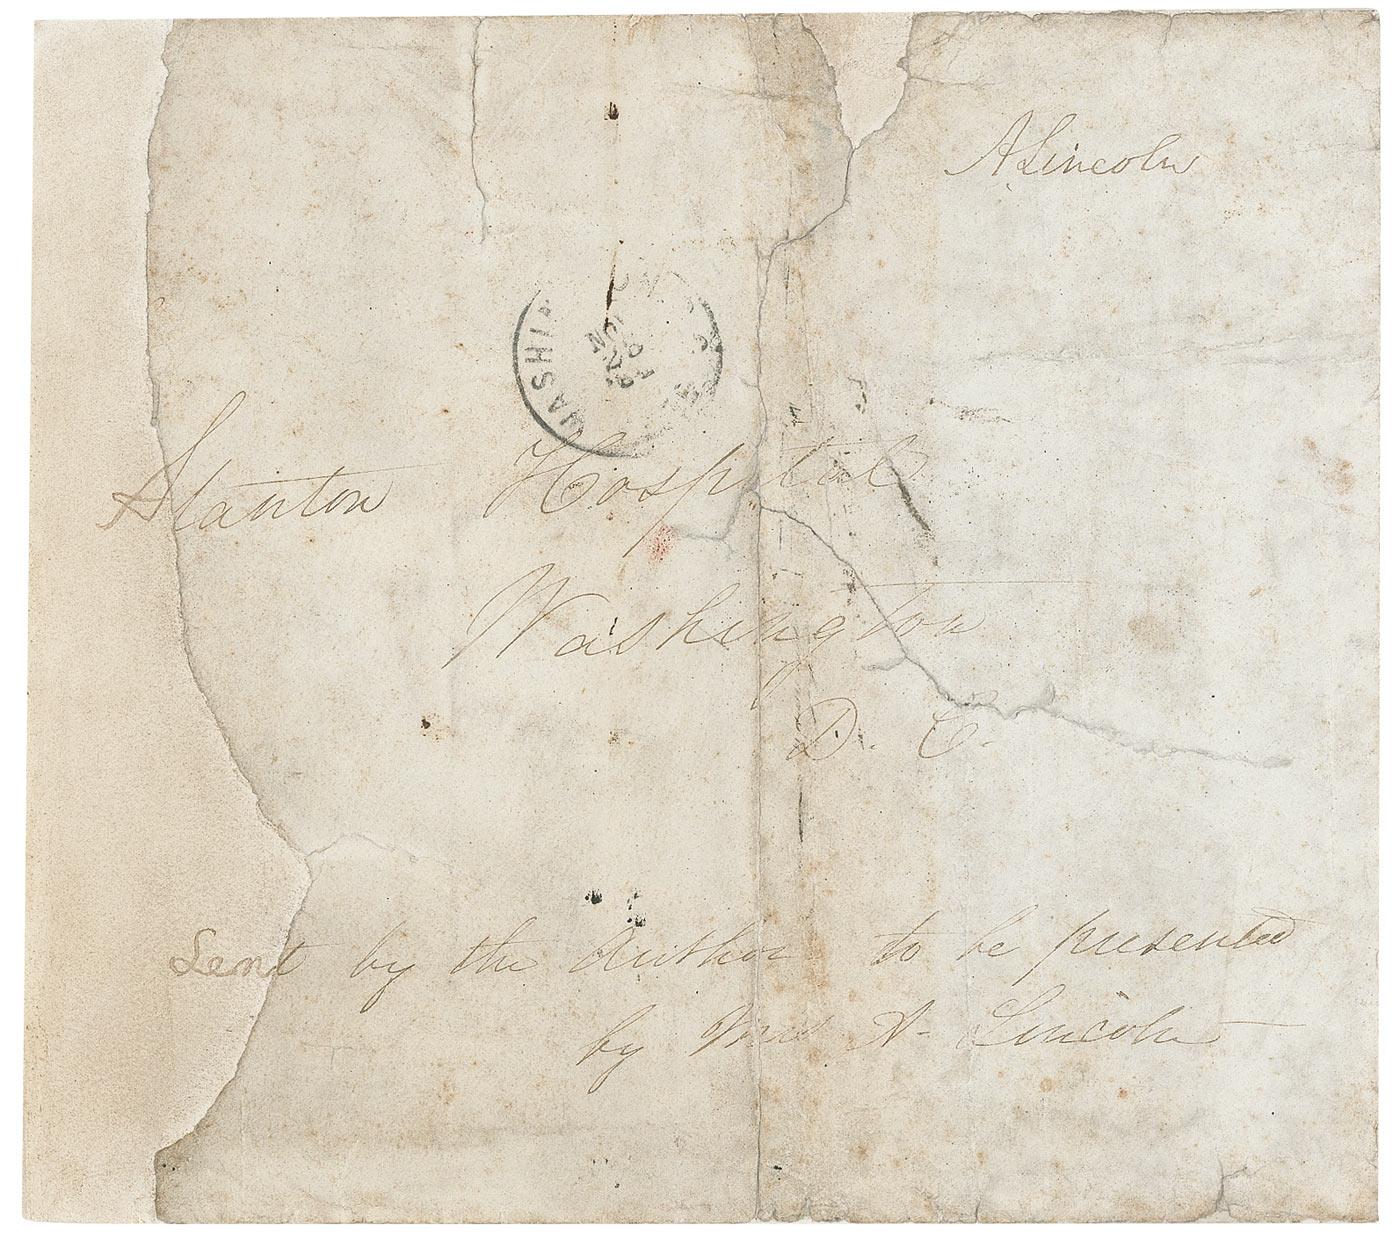 A Lincoln
WASHINGTON
NOV
28
Stanton Hospital
Washington
D. C.
Sent by the Author to be presented
by Mrs A. Lincoln